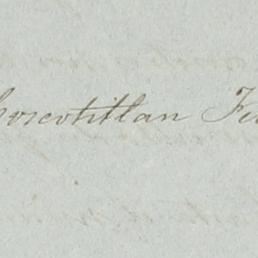 Coscotitlan Fe